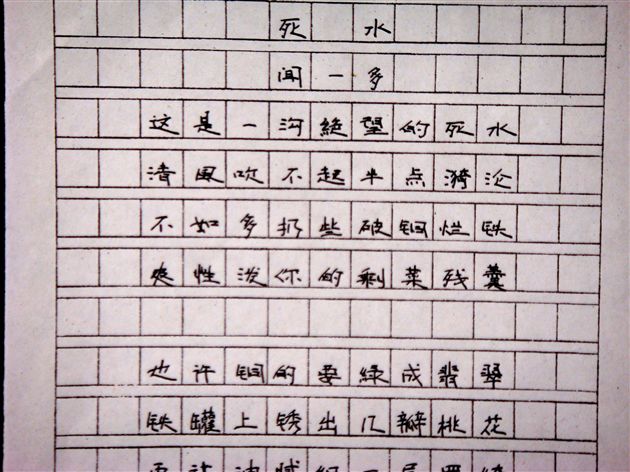 死水
闻一多
这是一沟絕望的死水
清風吹不起半点漪沦
不如多扔些破铜烂铁
爽性泼你的剩菜残羹
也许铜的要绿成翡翠
铁罐上锈出几瓣桃花